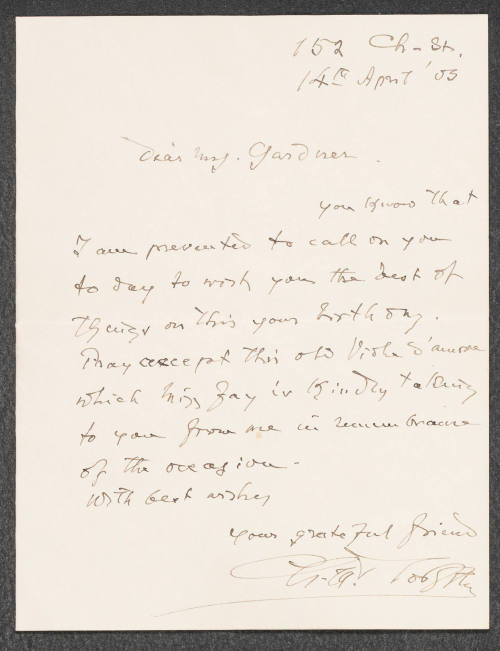 152 Ch-St.
14th April '03
Dear Mrs. Gardner.
you know that
I am prevented to call on you
to day to wish you the best of
things on this your birthday.
Pray accept this old Viole d'amore
which Miss Fay is kindly taking
to you from me in remembrance
of the occasion -
With best wishes
your grateful friend